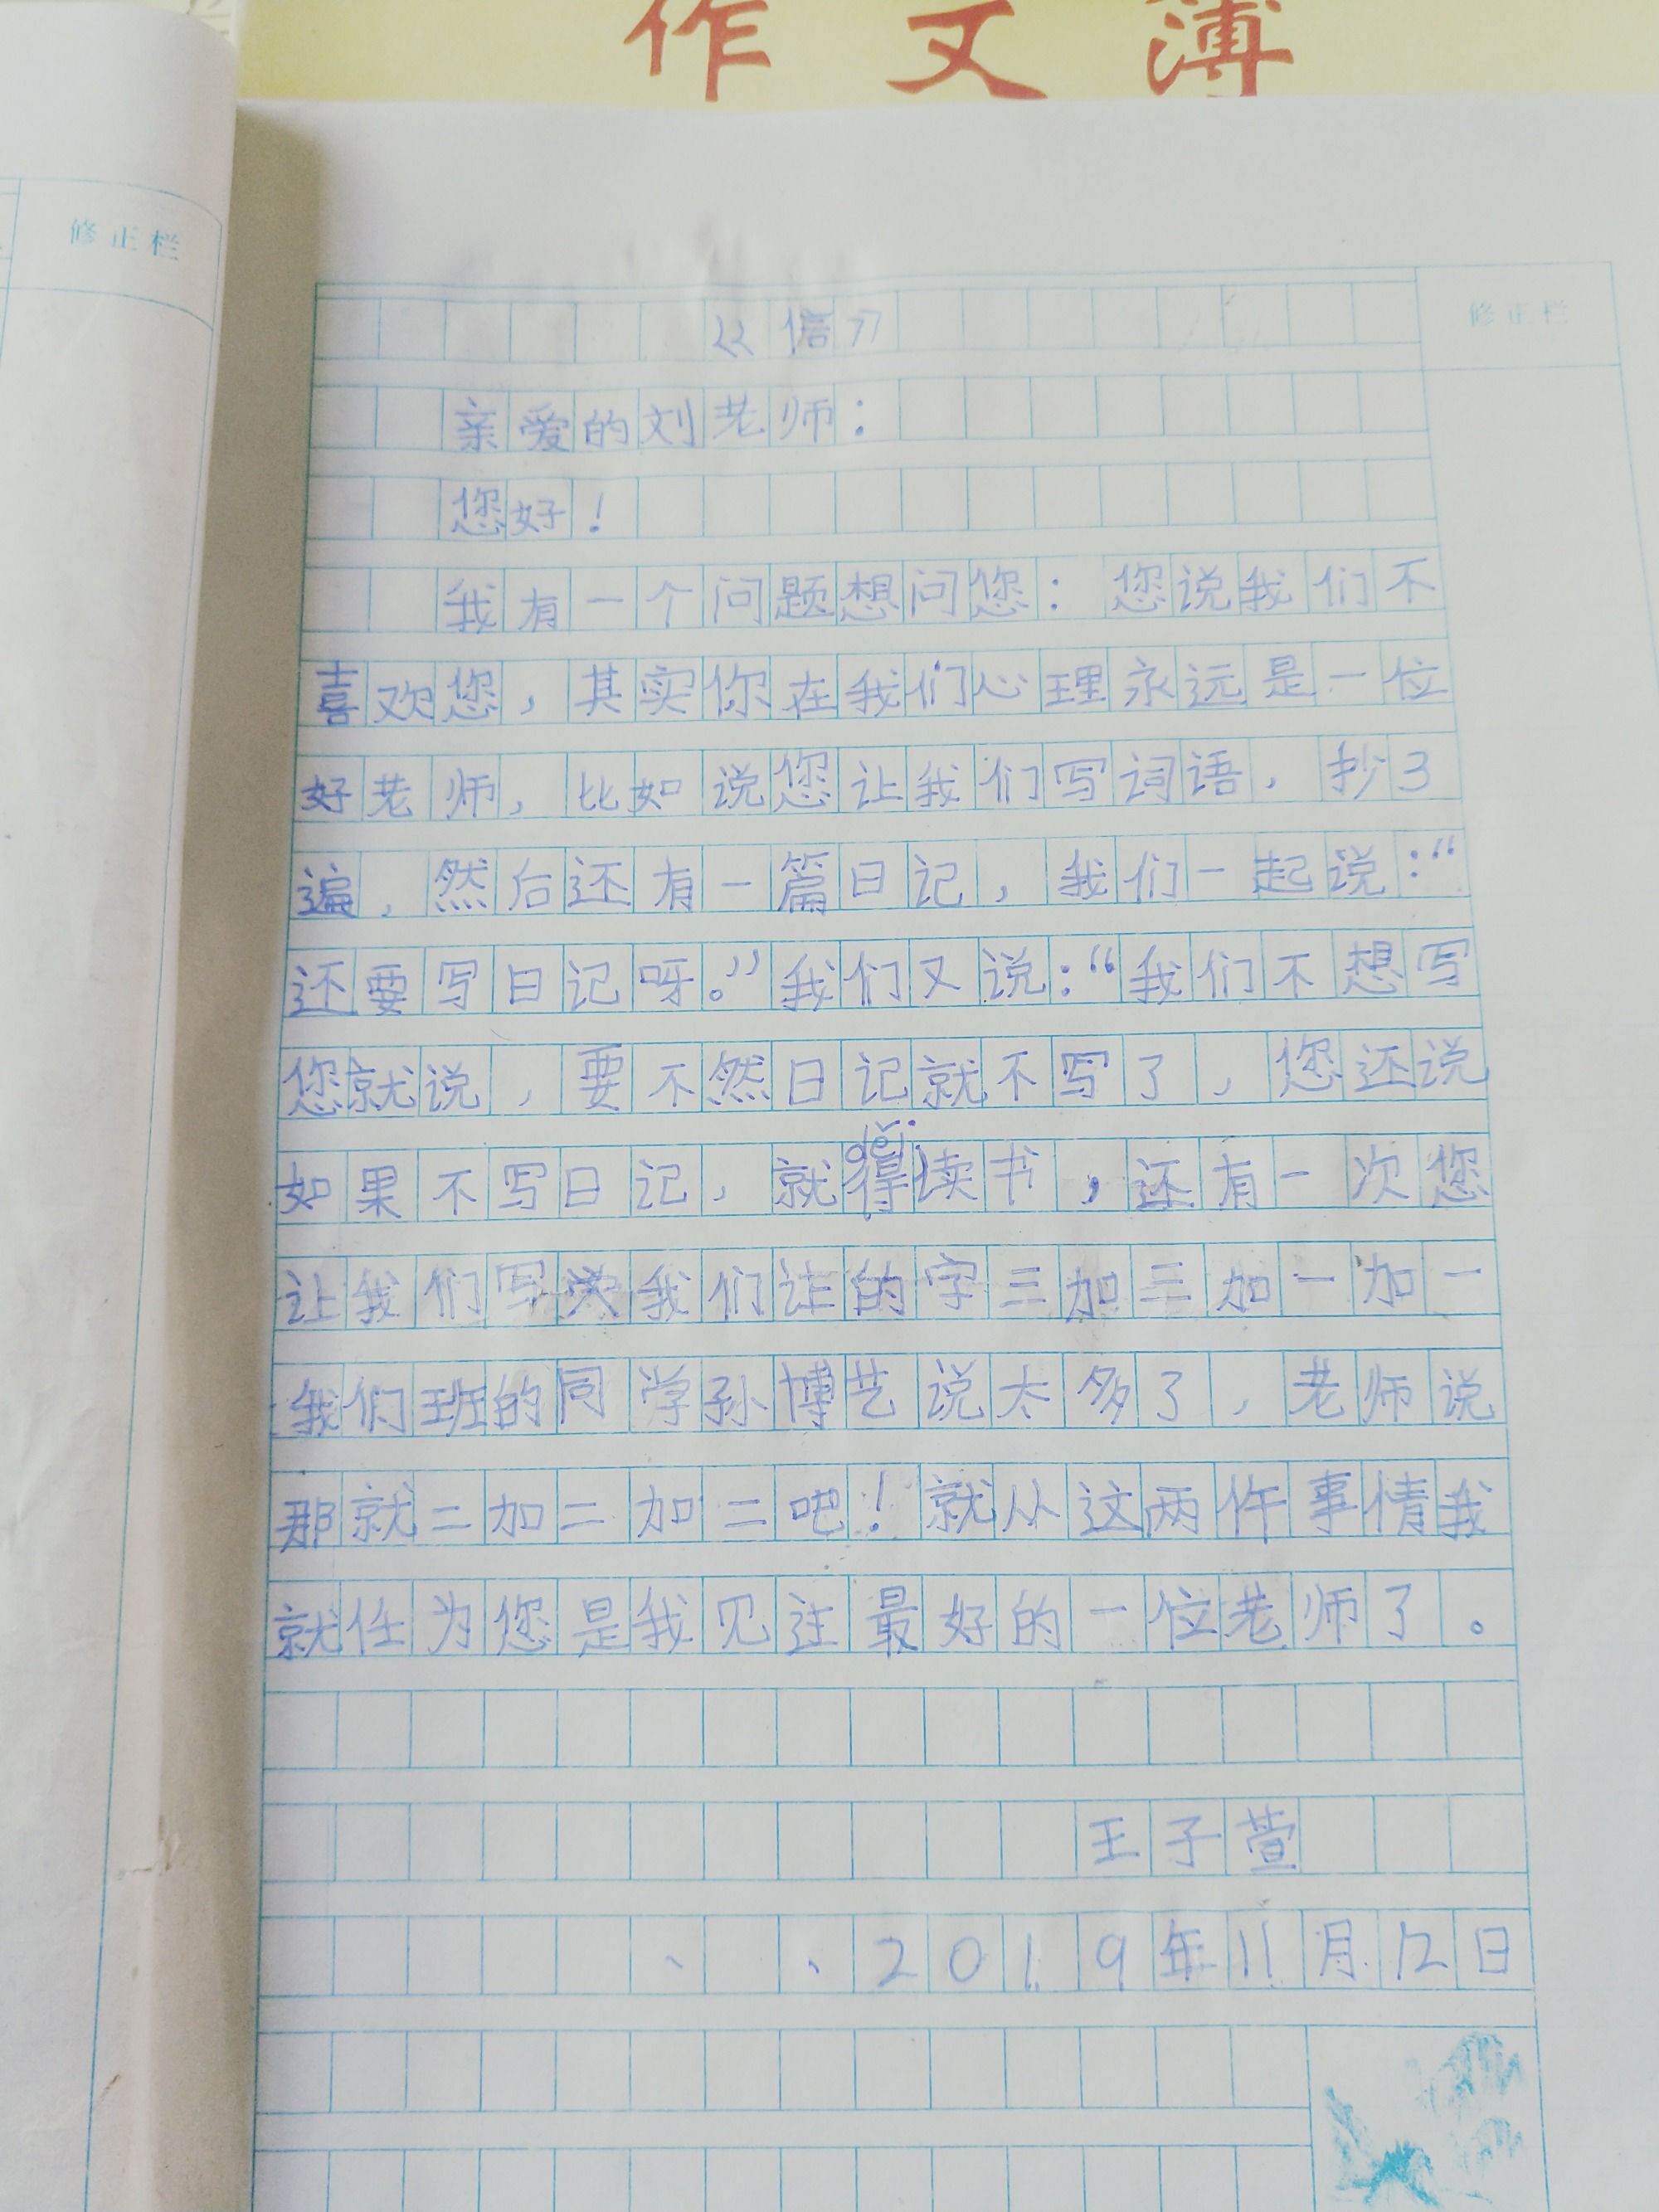 作文簿
修正栏
修正栏
《信》
亲爱的刘老师：
您好！
我有一个问题想问您：您说我们不
喜欢您，其实你在我们心理永远是一位
好老师，比如说您让我们写词语，抄3
遍，然后还有一篇日记，我们一起说：“
还要写日记呀。”我们又说：“我们不想写
您就说，要不然日记就不写了，您还说
děi
如果不写日记，就得读书，还有一次您
让我们写 我们 的字三加三加一加一
我们班的同学孙博艺说太多了，老师说
那就二加二加二吧！就从这两件事情我
就任为您是我见 最好的一位老师了。
王子萱
2019年11月12日